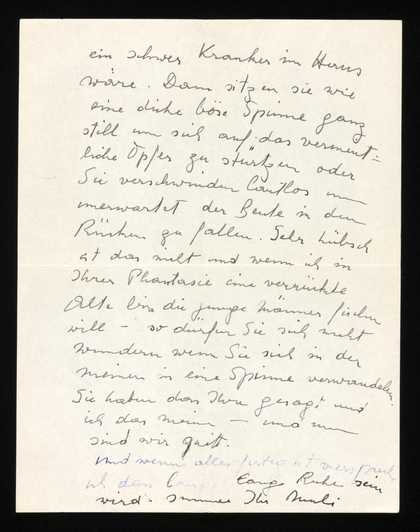 ein schwer Kranker im Haus
wäre. Dann sitzen sie wie
eine dicke böse Spinne ganz
still um sich auf "das vermeint=
liche Opfer zu stürtzen oder
Sie verschwinden lautlos um
unerwartet der Beute in den
Rücken zu fallen. Sehr hübsch
ist das nicht und wenn ich in
Ihrer Phantasie eine verrückte
Alte bin die junge Männer fischen
will – so dürfen Sie sich nicht
wundern wenn Sie sich in der
meinen in eine Spinne verwandeln.
Sie haben das Ihre gesagt und
ich das meine – und nun
sind wir quitt.
und wenn alles
ich dass lange Ruhe sein
wird. immer Ihre